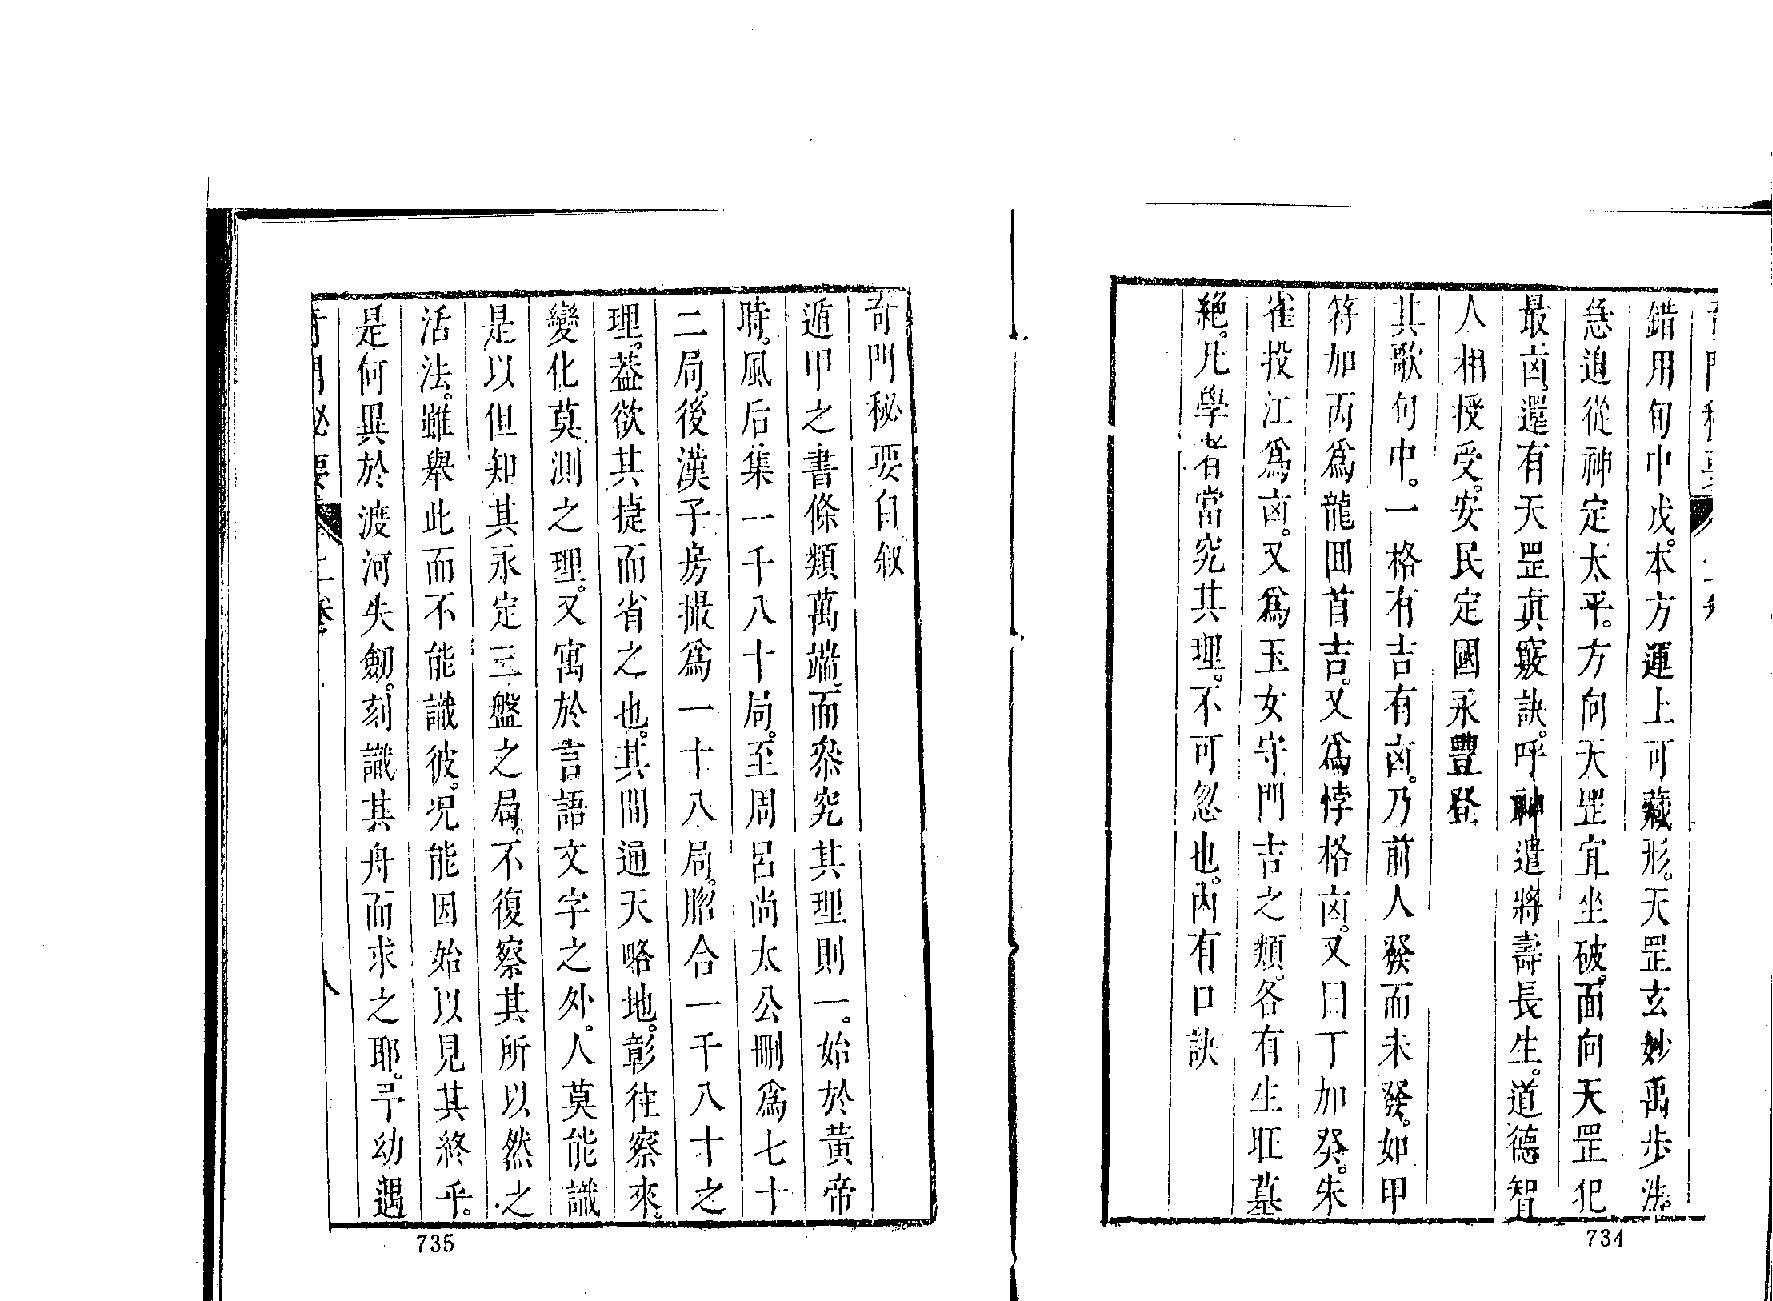 錯用旬中戊。本方運上可藏形。天罡玄妙禹步法。
急迫從神定太平。方向天罡宜坐破。面向天罡犯
最凶。還有天罡真竅訣。呼神遣將壽長生。道德智
人相授受。安民定國永豐登
其歌句中。一格有吉有凶。乃前人發而未發。如甲
符加丙爲龍回首吉。又爲悖格凶。又曰丁加癸。朱
雀投江爲凶。又爲玉女守門吉之類。各有生旺墓
絶。凡學者當究其理。不可忽也。內有口訣
734
奇門秘要自叙
遁甲之書條類萬端。而叅究其理則一。始於黃帝
時。風后集一千八十局。至周呂尚太公刪爲七十
二局。後漢子房撮爲一十八局。脗合一千八十之
理。葢欲其捷而省之也。其間通天略地。彰往察來。
變化莫測之理。又寓於言語文字之外。人莫能識
是以但知其永定三盤之局。不復察其所以然之
活法。雖舉此而不能識彼。况能因始以見其終乎。
是何異於渡河失劒。刻識其舟而求之耶。予幼遇
奇門秘要 上卷 八
735